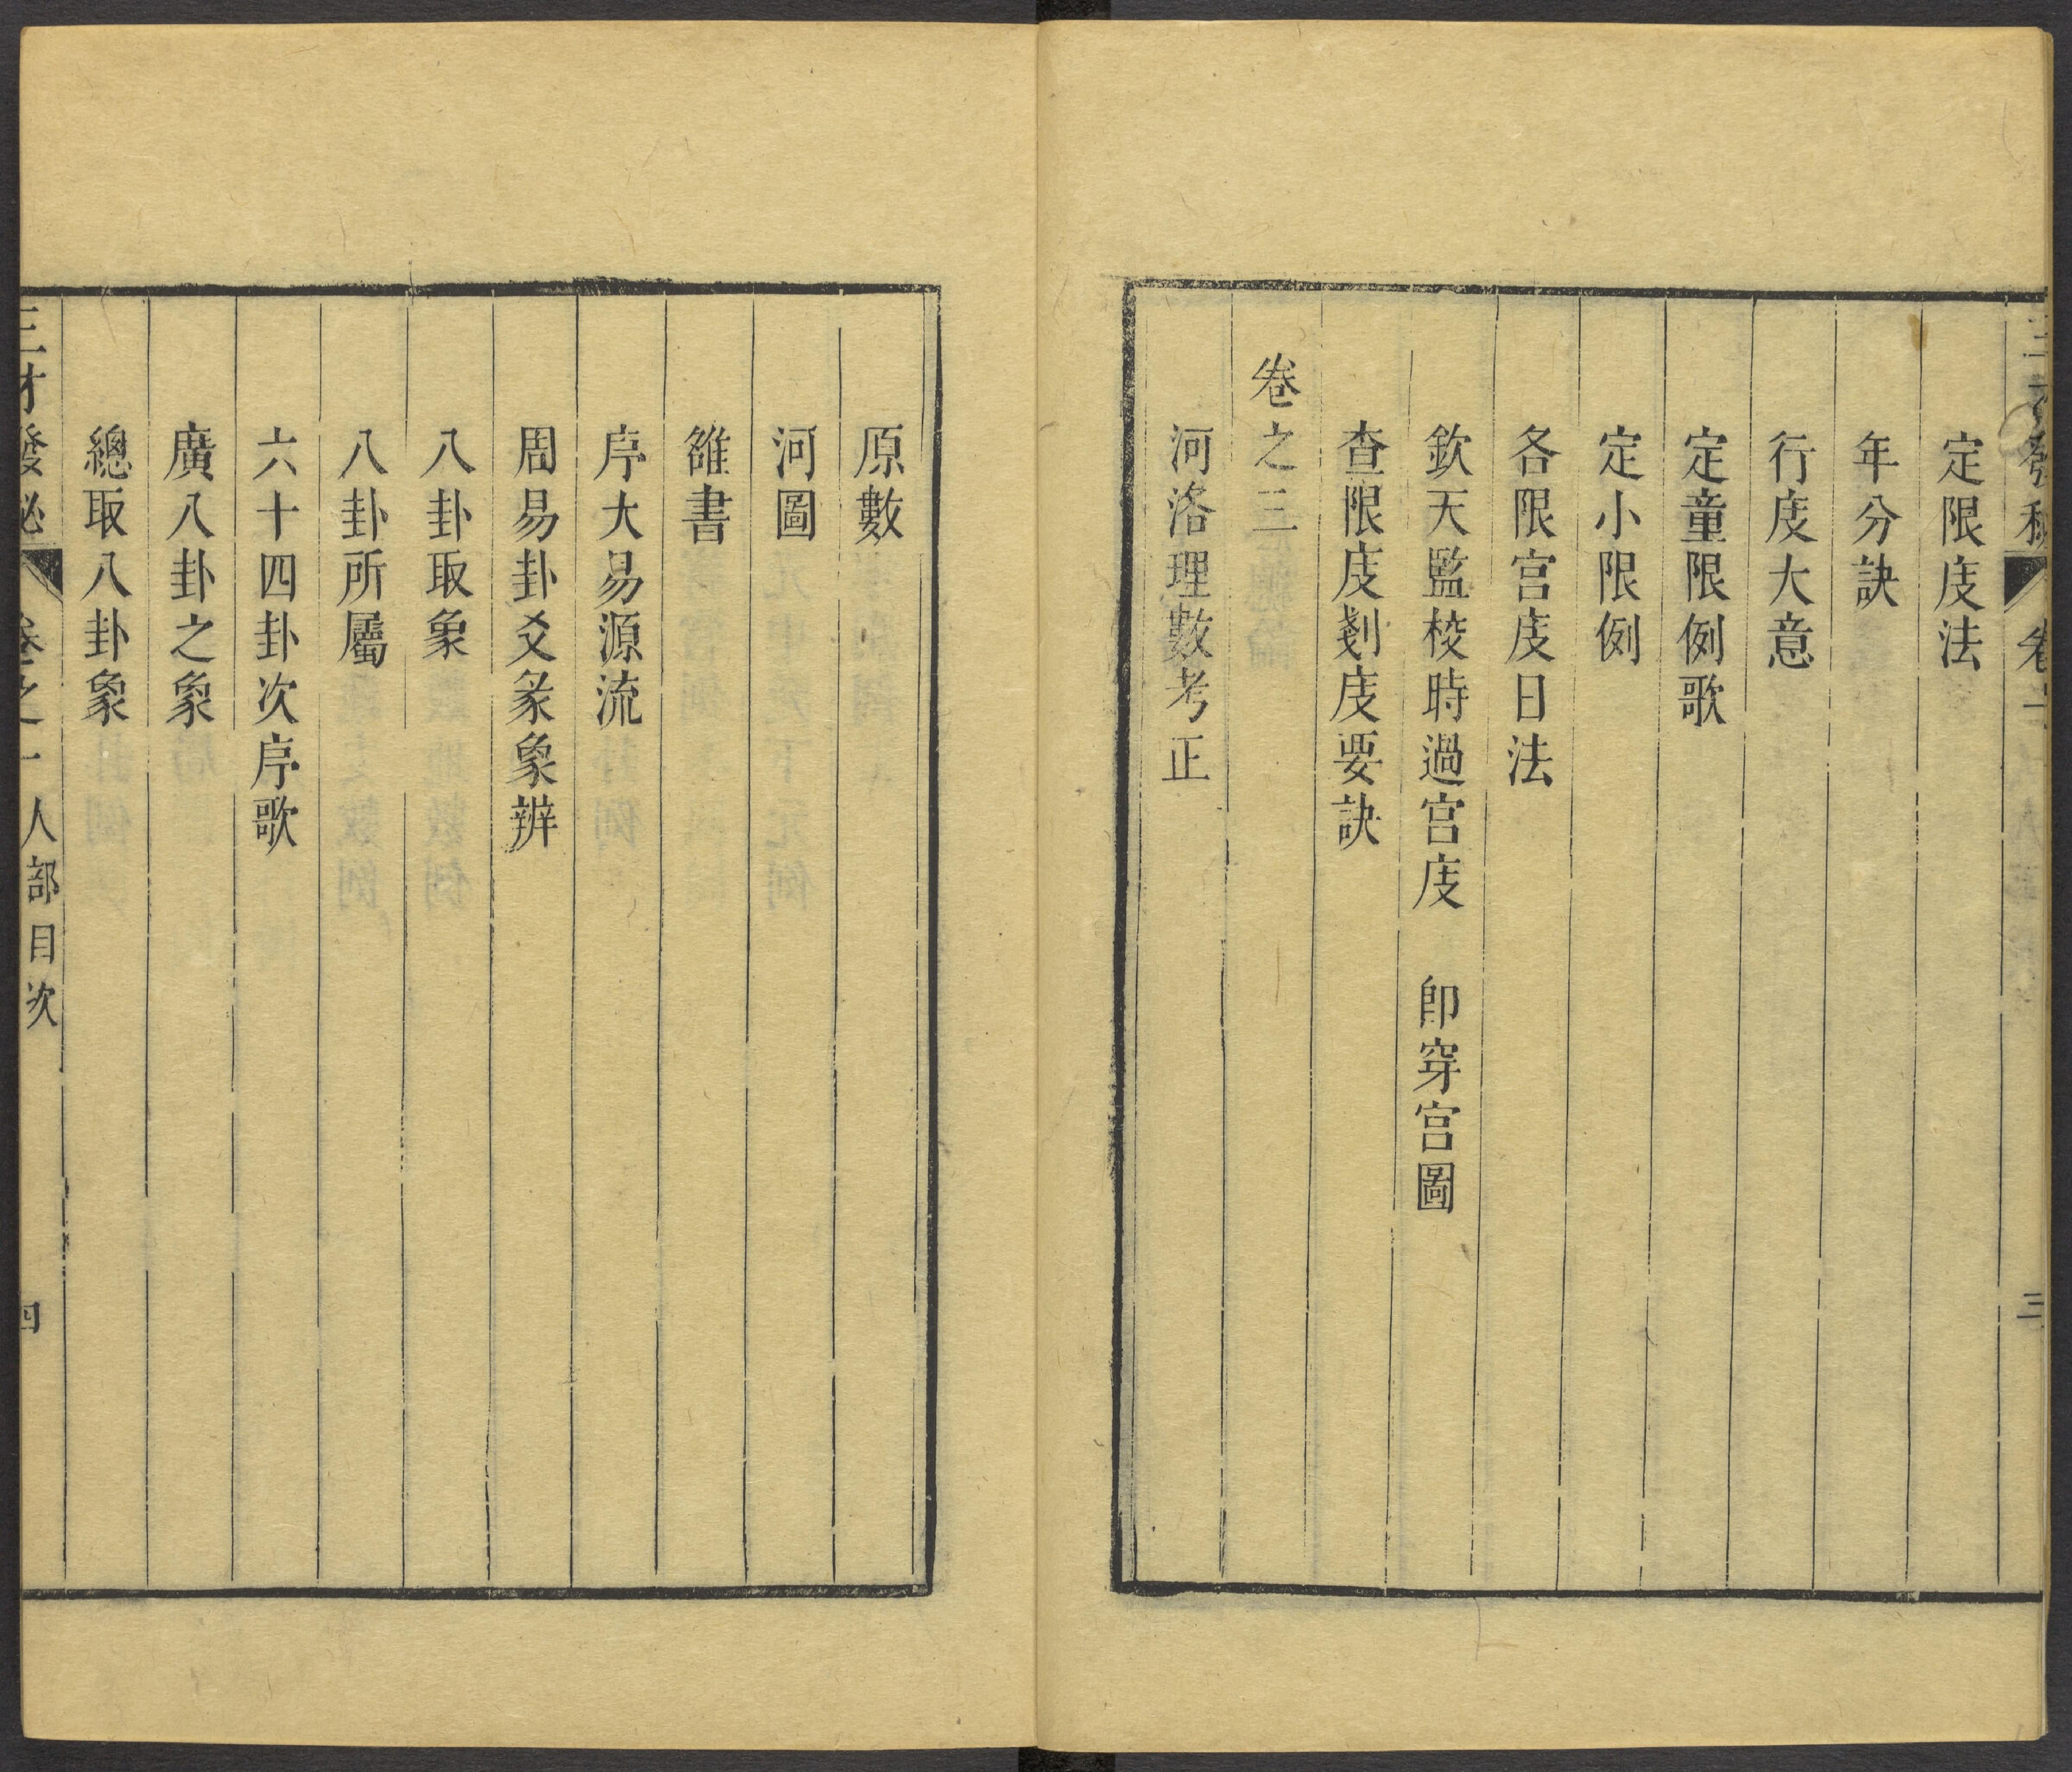 定限度法
年分訣
行度大意
定童限例歌
定小限例
各限宫度日法
欽天監校時過宫度　卽穿宫圖
查限度剗度要訣
卷之三
河洛理數考正
原數
河圖
雒書
序大易源流
周易卦爻彖象辨
八卦取象
八卦所屬
六十四卦次序歌
廣八卦之象
總取八卦象
三才發祕 卷之一 人部目次 四